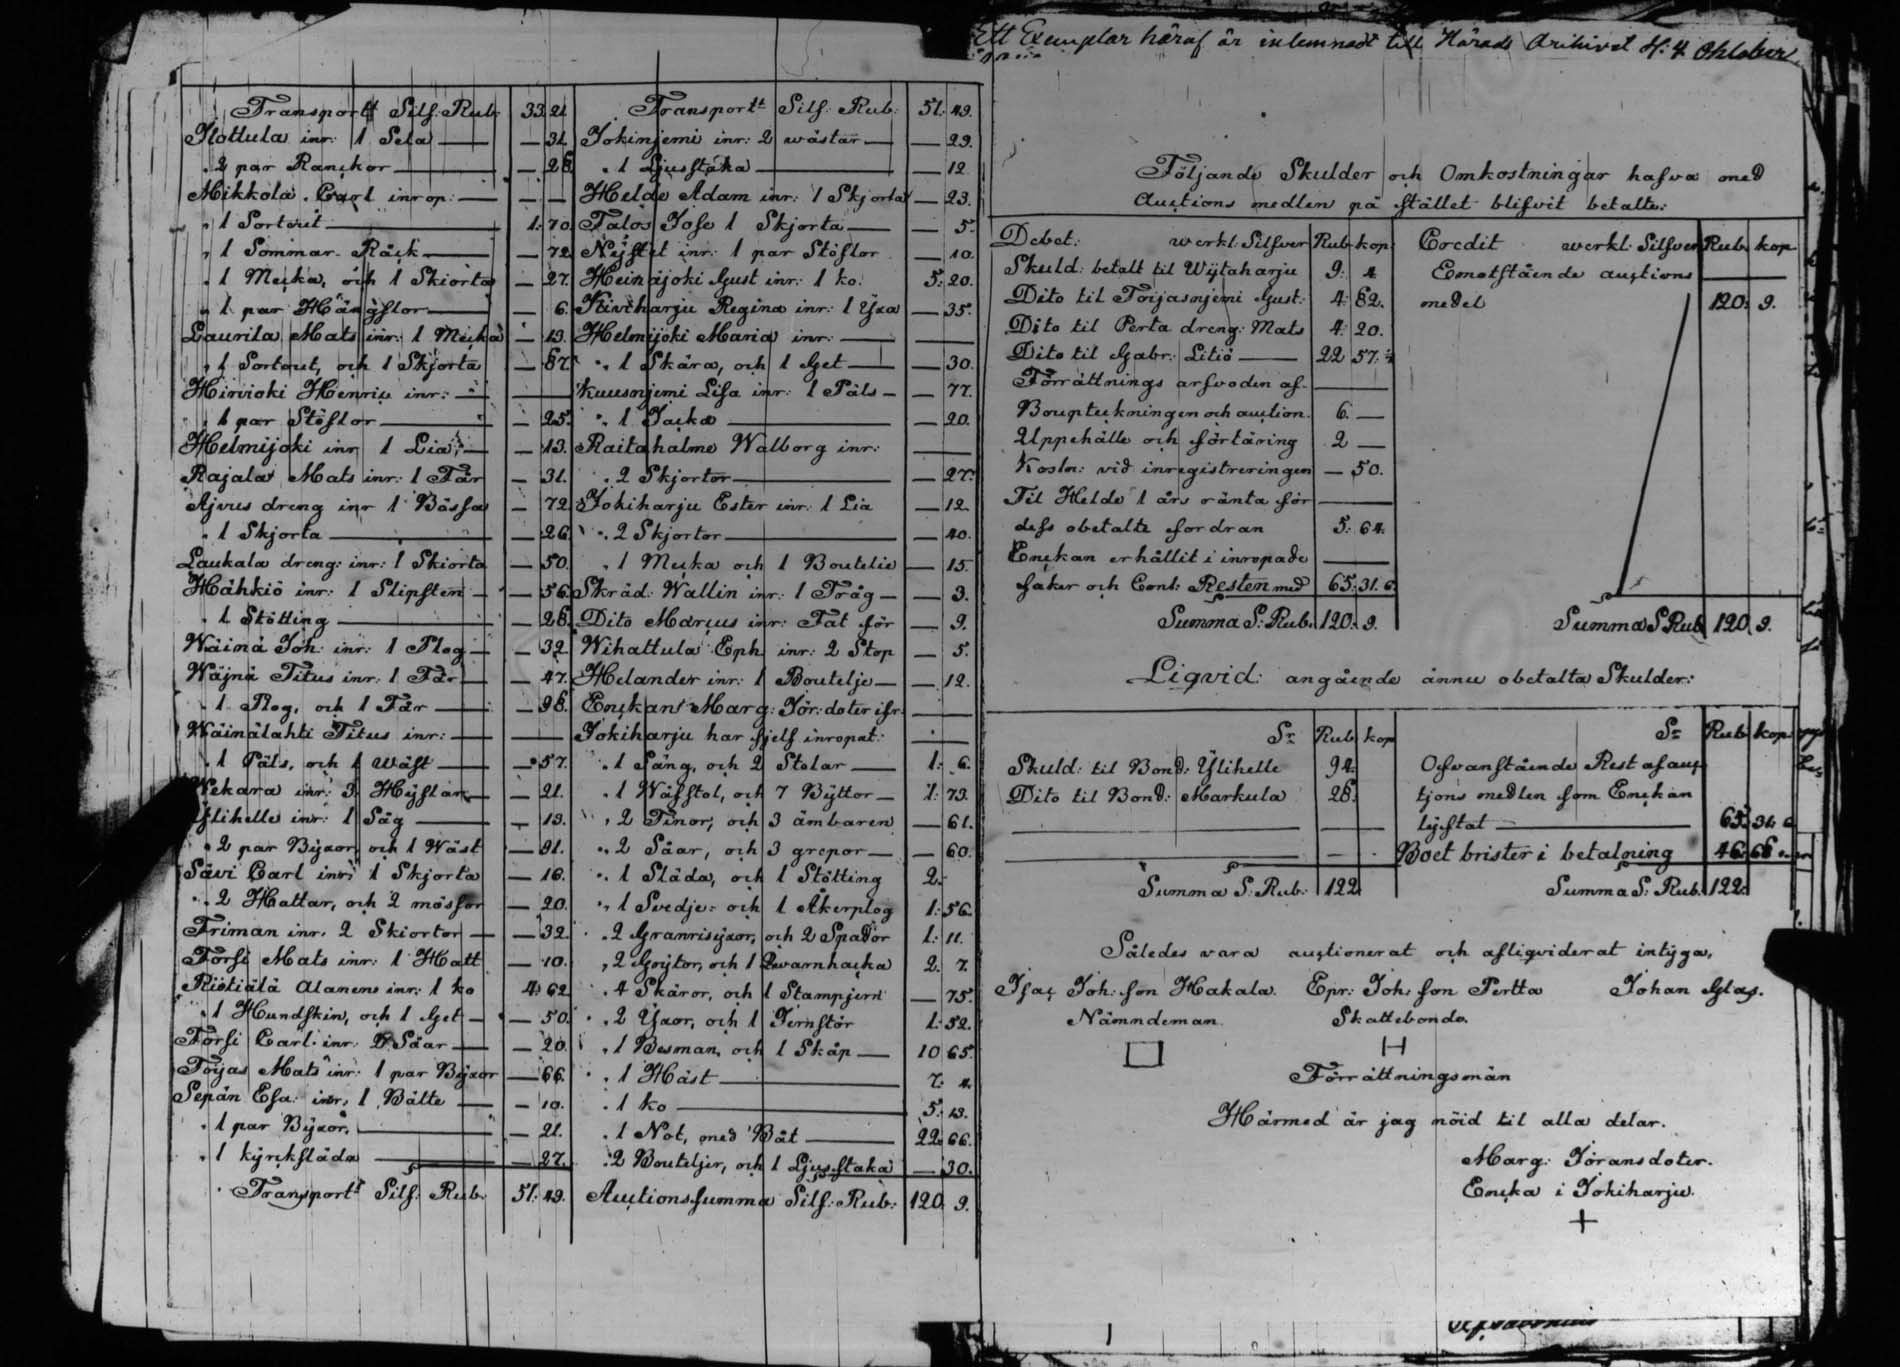 Transportt Silf: Rub: 33. 21
Flottula inr: 1 Sela — 31.
" 2 par Ranckor — 28.
Mikkola Carl inrop: — —
" 1 Sortout 1: 70.
" 1 Sommar Råck — 72.
" 1 Mecka, och 1 Skiorta — 27.
" 1 par Hängslor — 6.
Laurila Mats inr: 1 Mecka — 13.
" 1 Sortout, och 1 Skjorta — 87.
Hirvioki Henric inr: —
" 1 par Stöflor — 25.
Helmijoki inr 1 Lia — 13.
Rajala Mats inr: 1 Får — 31.
Ajvus dreng inr 1 Bössa — 72.
" 1 Skjorta — 26.
Laukala dreng: inr: 1 Skiorta — 50.
Hähkiö inr: 1 Slipsten — 56.
" 1 Stötting — 28.
Wäinä Joh: inr: 1 Plog — 32.
Wäjnä Titus inr: 1 Får — 47.
" 1 Plog, och 1 Får — 98.
Wäinälahti Titus inr: —
" 1 Päls, och 1 Wäst — 57.
Wekara inr: 3 Hyflar — 21.
Ylihelle inr: 1 Såg — 13.
" 2 par Byxor och 1 Wäst — 91.
Sävi Carl inr: 1 Skjorta — 16.
" 2 Hattar, och 2 mössor — 20.
Friman inr. 2 Skiortor — 32.
Forsi Mats inr: 1 Hatt — 10.
Ristiälä Alanens inr: 1 ko 4: 62
" 1 Hundskin, och 1 Get — 50.
Forsi Carl: inr: 2 Såar — 20.
Toijas Mats inr: 1 par Byxor — 66.
Sepän Esa: inr: 1 Bälte — 10.
" 1 par Byxor. — 21.
" 1 kyrkslåda — 27.
Transportt Silf: Rub: 51: 49.
Transportt Silf: Rub: 51: 49.
Jokinjemi inr: 2 wästar — 29.
" 1 Ljusstaka — 12
Helde Adam inr: 1 Skjorta — 23.
Talos Jose 1 Skjorta — 5.
Nystet inr: 1 par Stöflor — 10.
Heinäjoki Gust inr: 1 ko. 5: 20.
Kiviharju Regina inr: 1 Yxa — 35.
Helmijoki Maria inr: —
" 1 Skära, och 1 Get — 30.
Kuusnjemi Lisa inr: 1 Päls — 77.
" 1 Jacka — 20.
Raitahalme Walborg inr: —
" 2 Skjortor — 27.
Jokiharju Ester inr: 1 Lia — 12.
" 2 Skjortor — 40.
" 1 Mecka och 1 Boutelie — 15.
Skräd: Wallin inr: 1 Tråg — 3.
Dito Marcus inr: Fat för — 9.
Wihattula Eph inr: 2 Stop — 5.
Helander inr: 1 Boutelje — 12.
Enckan Marg: Jör: doter ifr. —
Jokiharju har sjelf inropat: —
" 1 Säng, och 2 Stolar 1: 6.
" 1 Wäfstol, och 7 Byttor 1: 73.
" 2 Tinor, och 3 ämbaren — 61.
" 2 Såar, och 3 grepor — 60.
" 1 Släda, och 1 Stötting 2. –
" 1 Svedje: och 1 Åkerplog 1: 56.
" 2 Granrisyxor, och 2 Spador 1: 11.
" 2 Goytor, och 1 Qwarnhacka 2. 7.
" 4 Skäror, och 1 Stampjern — 75.
" 2 Yxor, och 1 Jernstör 1: 52.
" 1 Besman, och 1 Skåp 10 65.
" 1 Häst 7. 4.
" 1 ko 5: 13.
" 1 Not, med Båt 22: 66.
" 2 Bouteljer, och 1 Ljusstaka — 30.
Auctionssumma Silf: Rub: 120. 9.
Ett Exemplar häraf är inlemnadt till Härads Arkivet d: 4 Oktober
Följande Skulder och Omkostningar hafva med
Auctions medlen på stället blifvit betalte:
Debet: werkl: Silfver Rub kop:
Skuld: betalt til Wijtaharju 9: 4
Dito til Toijasnjemi Gust: 4: 82.
Dito til Perta dreng: Mats 4: 20.
Dito til Gabr: Litiö 22 57.
Förrättnings arfvoden af —
Boupteckningen och auction. 6. —
Uppehälle och förtäring 2 —
Kostn: vid inregistreringen — 50.
Til Helde 1 års ränta för —
dess obetalte fordran 5: 64.
Enckan erhållit i inropade —
saker och Cont: Resten med 65: 31. 6.
Summa S: Rub. 120: 9.
Credit werkl: Silfver Rub kop
Emotstående auctions
medel 120: 9.
Summa S Rub 120. 9.
Liqvid: angående ännu obetalta Skulder:
Sr Rub kop
Skuld: til Bond: Ylihelle 94.
Dito til Bond: Markula 28.
Summa S: Rub: 122
Sr Rub kop
Ofvanstående Rest af auc
tjons medlen som Enckan
lyftat 65: 31. 6
Boet brister i betalning 46: 68
Summa S: Rub. 122.
Således vara auctionerat och afliqviderat intyga,
Isac Joh: son Hakala. Epr: Joh: son Pertta Johan Glas.
Nämndeman. Skattebonde.
Förrättningsmän
Härmed är jag nöid til alla delar.
Marg: Jöransdoter.
Encka i Jokiharju.